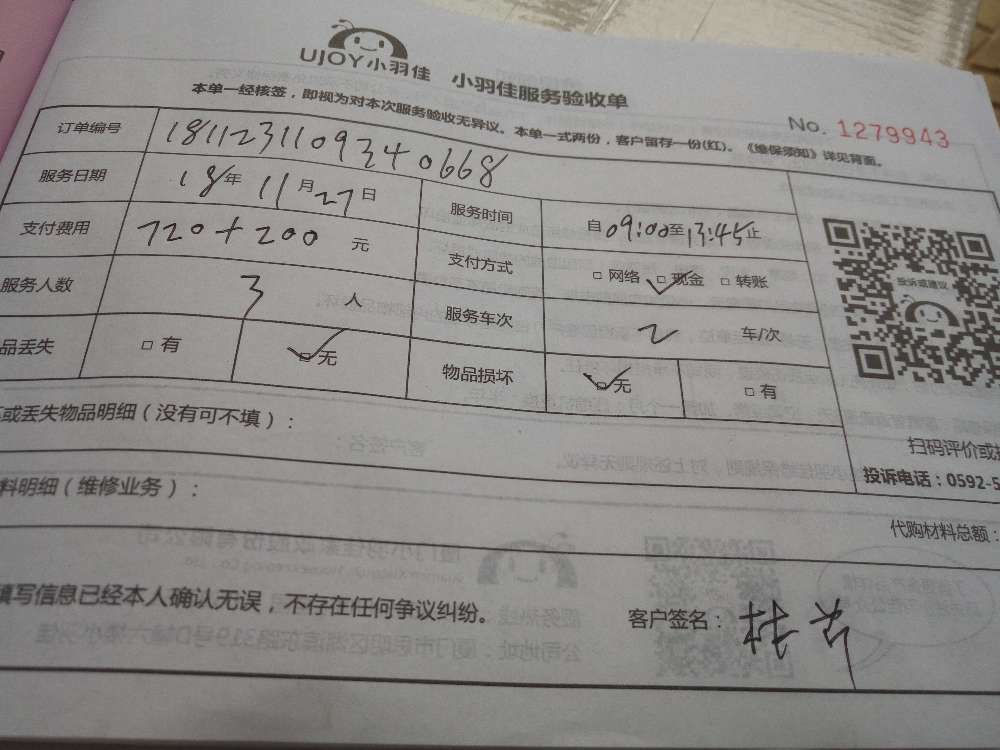 UJOY小羽佳 小羽佳服务验收单
本单一经核签，即视为对本次服务验收无异议。本单一式两份，客户留存一份(红)。《维保须知》详见背面。
No. 1279943
订单编号 181123110934 0668
服务日期 18年 11月27日 服务时间 自09:00至13:45止
支付费用 720+200 元 支付方式 □网络 □现金 □转账
服务人数 3 人 服务车次 2 车/次
品丢失 □有 □无 物品损坏 □无 □有
投诉或建议
或丢失物品明细（没有可不填）：
扫码评价或
投诉电话：0592-5
料明细（维修业务）：
代购材料总额：
填写信息已经本人确认无误，不存在任何争议纠纷。
客户签名：